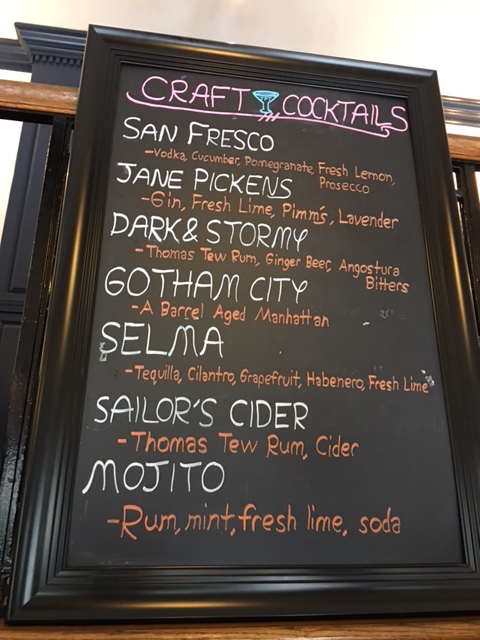 CRAFT COCKTAILS
SAN FRESCO
-Vodka, Cucumber, Pomegranate, Fresh Lemon,
Prosecco
JANE PICKENS
-Gin, Fresh Lime, Pimm's, Lavender
DARK & STORMY
-Thomas Tew Rum, Ginger Beer, Angostura
Bitters
GOTHAM CITY
-A Barrel Aged Manhattan
SELMA
-Tequilla, Cilantro, Grapefruit, Habenero, Fresh Lime
SAILOR'S CIDER
-Thomas Tew Rum, Cider
MOJITO
-Rum, mint, fresh lime, soda